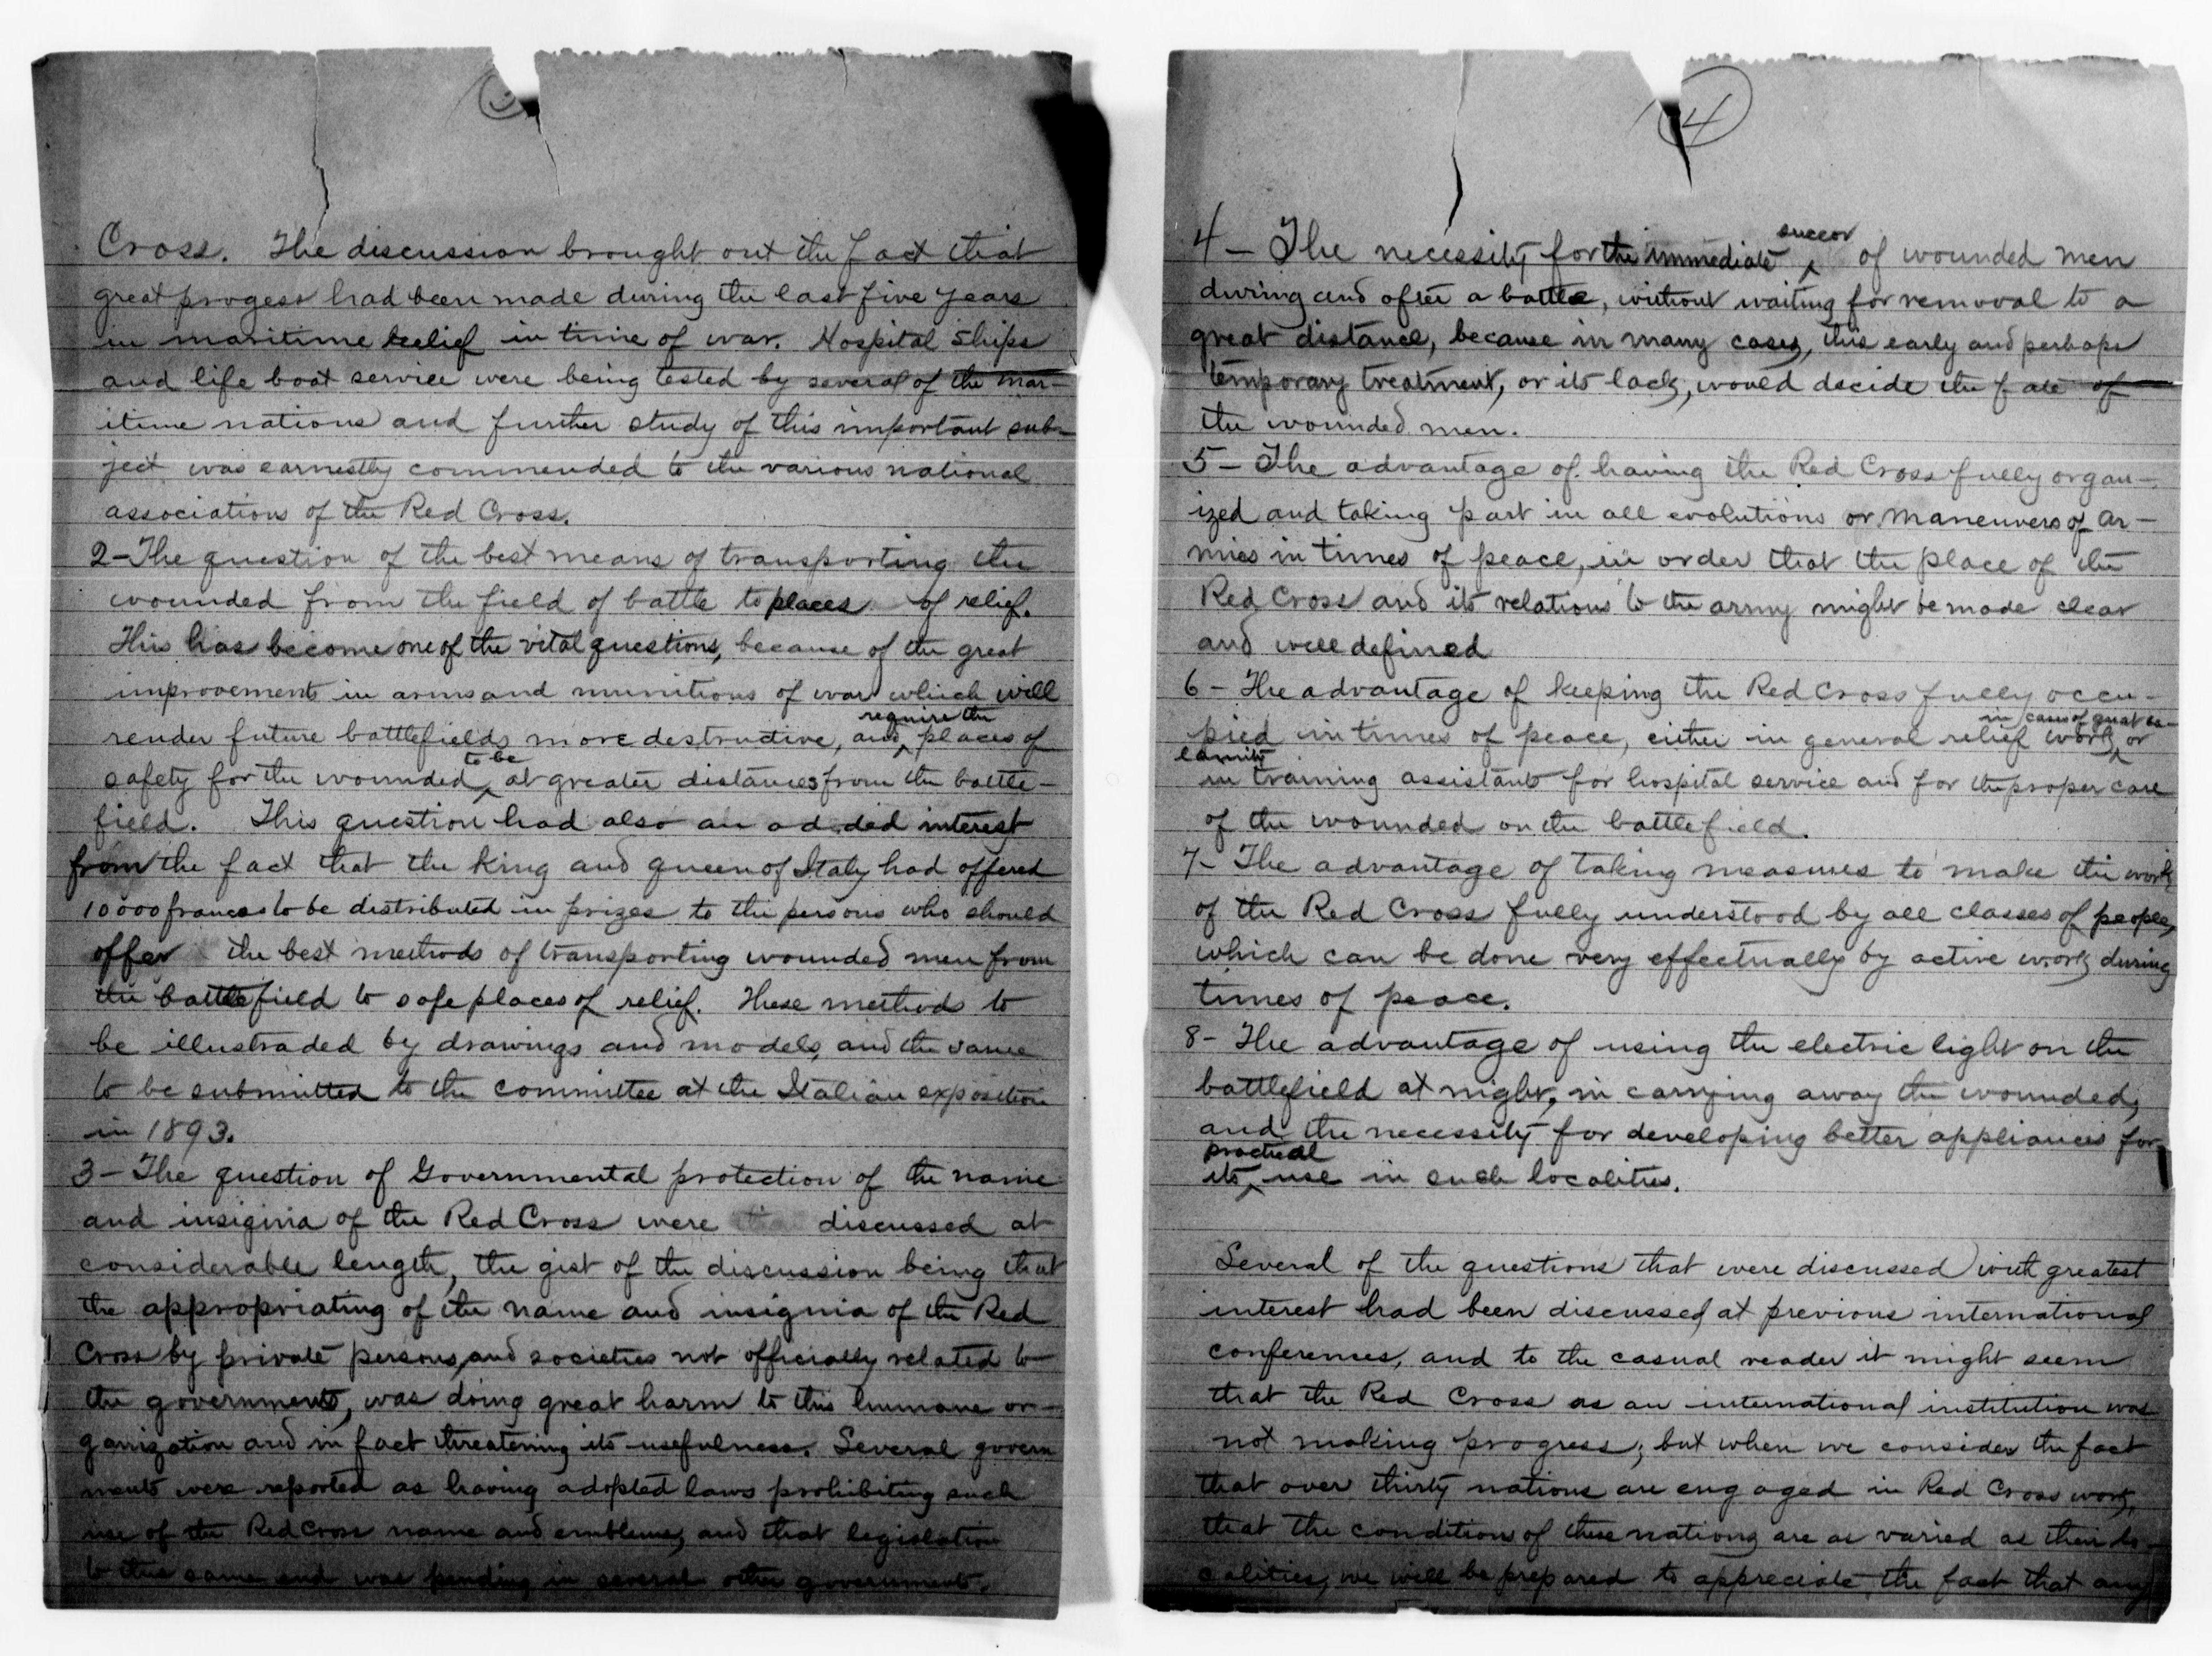 3
Cross. The discussion brought out the fact that
great progess had been made during the last five years
in maritime relief in time of war. Hospital Ships
and life boat service were being tested by several of the mar-
itime nations and further study of this important sub-
ject was earnestly commended to the various national
associations of the Red Cross.
2-The question of the best means of transporting the
wounded from the field of battle to places of relief.
This has become one of the vital questions, because of the great
improvements in arms and munitions of war which will
require the
render future battlefields more destructive, and places of
to be
safety for the wounded at greater distances from the battle-
field. This question had also an added interest
from the fact that the King and queen of Italy had offered
10000 francs to be distributed in prizes to the persons who should
offer the best methods of transporting wounded men from
the battlefield to safe places of relief. These methods to
be illustraded by drawings and models, and the same
to be submitted to the committee at the Italian exposition
in 1893.
3-The question of Governmental protection of the name
and insignia of the Red Cross were discussed at
considerable length, the gist of the discussion being that
the appropriating of the name and insignia of the Red
Cross by private persons, and societies not officially related to
the governments, was doing great harm to this humane or-
ganization and in fact threatening its usefulness. Several govern
ments were reported as having adopted laws prohibiting such
use of the Red Cross name and emblems, and that legislation
to this same end was pending in several other governments.
4
succor
4- The necessity for the immediate of wounded men
during and after a battle, without waiting for removal to a
great distance, because in many cases, this early and perhaps
temporary treatment, or its lack, would decide the fate of
the wounded men.
5- The advantage of having the Red Cross fully organ-
ized and taking part in all evolutions or maneuvers of ar-
mies in times of peace, in order that the place of the
Red Cross and its relations to the army might be made clear
and well defined
6- The advantage of keeping the Red Cross fully occu-
in cases of great ca-
pied in times of peace, either in general relief work, or
lamity
in training assistants for hospital service and for the proper care
of the wounded on the battlefield.
7- The advantage of taking measures to make the work
of the Red Cross fully understood by all classes of people,
which can be done very effectually by active work during
times of peace.
8- The advantage of using the electric light on the
battlefield at night, in carrying away the wounded,
and the necessity for developing better appliances for
practical
its use in such localities.
Several of the questions that were discussed with greatest
interest had been discussed at previous international
conferences, and to the casual reader it might seem
that the Red Cross as an international institution was
not making progress; but when we consider the fact
that over thirty nations are engaged in Red Cross work,
that the conditions of these nations are as varied as their lo-
calities, we will be prepared to appreciate the fact that any